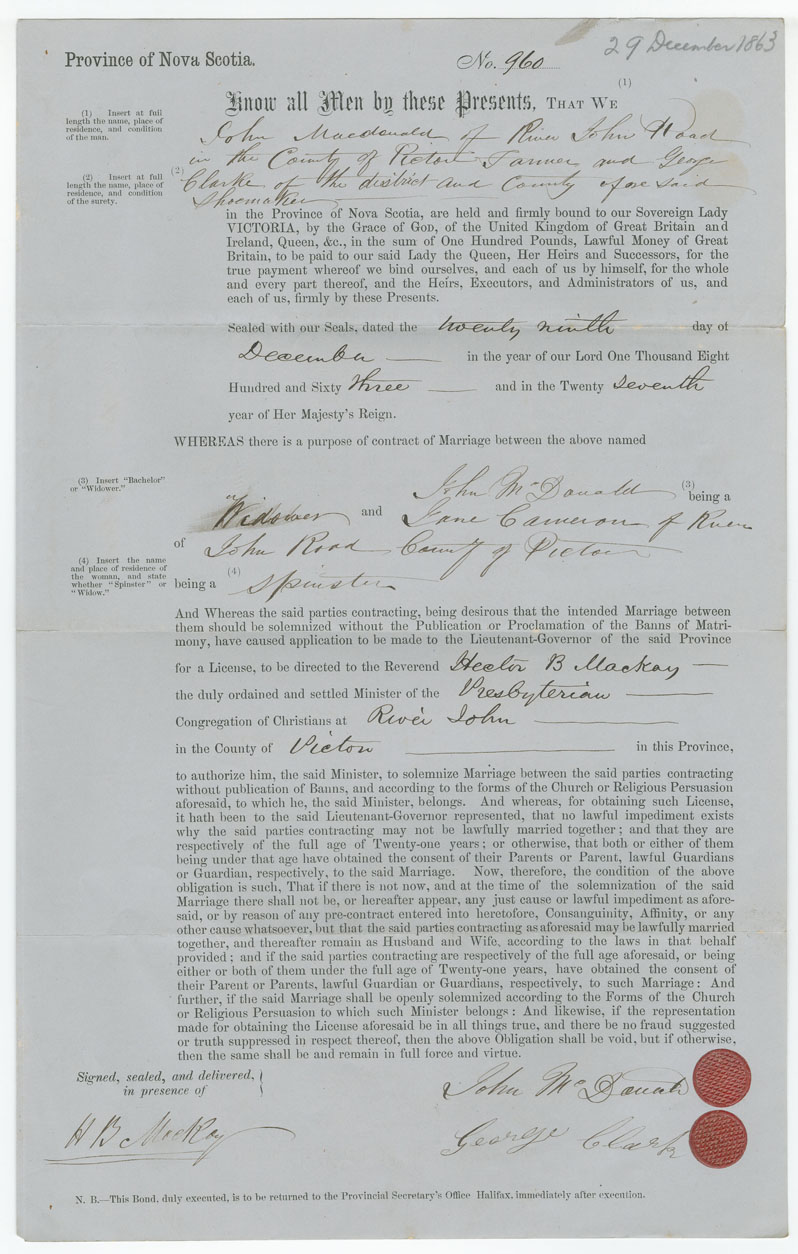 29 December 1863
Province of Nova Scotia.
No. 960
(1)
Know all Men by these Presents, THAT WE
(1) Insert at full
length the name, place of
residence, and condition
of the man.
John Macdonald of River John Road
in the County of Pictou Farmer and George
(2)
Clarke of the district and County afore said
Shoemaker
(2) Insert at full
length the name, place of
residence, and condition
of the surety.
in the Province of Nova Scotia, are held and firmly bound to our Sovereign Lady
VICTORIA, by the Grace of GOD, of the United Kingdom of Great Britain and
Ireland, Queen, &c., in the sum of One Hundred Pounds, Lawful Money of Great
Britain, to be paid to our said Lady the Queen, Her Heirs and Successors, for the
true payment whereof we bind ourselves, and each of us by himself, for the whole
and every part thereof, and the Heirs, Executors, and Administrators of us, and
each of us, firmly by these Presents.
Sealed with our Seals, dated the twenty ninth day of
December in the year of our Lord One Thousand Eight
Hundred and Sixty three and in the Twenty Seventh
year of Her Majesty's Reign.
WHEREAS there is a purpose of contract of Marriage between the above named
(3) Insert "Bachelor"
or "Widower."
John McDonald (3) being a
Widower and Jane Cameron of River
of John Road County of Pictou
(4) Insert the name
and place of residence of
the woman, and state
whether "Spinster" or
"Widow."
being a (4) Spinster
And Whereas the said parties contracting, being desirous that the intended Marriage between
them should be solemnized without the Publication or Proclamation of the Banns of Matri-
mony, have caused application to be made to the Lieutenant-Governor of the said Province
for a License, to be directed to the Reverend Hector B Mackay
the duly ordained and settled Minister of the Presbyterian
Congregation of Christians at River John
in the County of Pictou in this Province,
to authorize him, the said Minister, to solemnize Marriage between the said parties contracting
without publication of Banns, and according to the forms of the Church or Religious Persuasion
aforesaid, to which he, the said Minister, belongs. And whereas, for obtaining such License,
it hath been to the said Lieutenant-Governor represented, that no lawful impediment exists
why the said parties contracting may not be lawfully married together; and that they are
respectively of the full age of Twenty-one years; or otherwise, that both or either of them
being under that age have obtained the consent of their Parents or Parent, lawful Guardians
or Guardian, respectively, to the said Marriage. Now, therefore, the condition of the above
obligation is such, That if there is not now, and at the time of the solemnization of the said
Marriage there shall not be, or hereafter appear, any just cause or lawful impediment as afore-
said, or by reason of any pre-contract entered into heretofore, Consanguinity, Affinity, or any
other cause whatsoever, but that the said parties contracting as aforesaid may be lawfully married
together, and thereafter remain as Husband and Wife, according to the laws in that behalf
provided; and if the said parties contracting are respectively of the full age aforesaid, or being
either or both of them under the full age of Twenty-one years, have obtained the consent of
their Parent or Parents, lawful Guardian or Guardians, respectively, to such Marriage: And
further, if the said Marriage shall be openly solemnized according to the Forms of the Church
or Religious Persuasion to which such Minister belongs: And likewise, if the representation
made for obtaining the License aforesaid be in all things true, and there be no fraud suggested
or truth suppressed in respect thereof, then the above Obligation shall be void, but if otherwise,
then the same shall be and remain in full force and virtue.
Signed, sealed, and delivered,
in presence of
John McDonald
H B McKay
George Clark
N. B.—This Bond, duly executed, is to be returned to the Provincial Secretary's Office Halifax, immediately after execution.